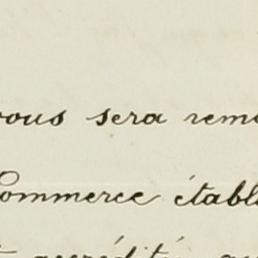 vous sera reme
Commerce établ
accrédité